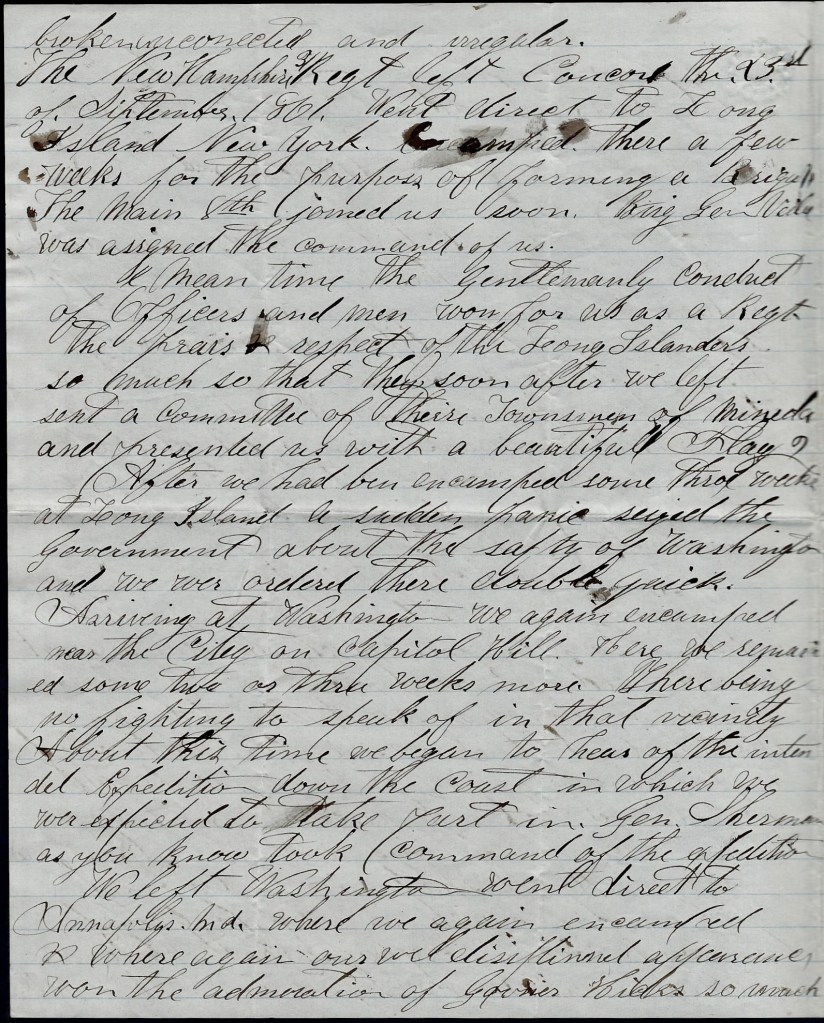 broken unconected and irregular.
The New Hampshire 3 Regt left Concord the 23rd
of September. 1861. Went direct to Long
Island New York. Encamped there a few
weaks for the purposs of forming a
The Main 8th joined us soon. Brig Gen Viele
was assigned the command of us.
mean time the Gentlemanly Conduct
of Officers and men won for us as a Regt
the prais & respect of the Long Islanders.
so much so that they soon after we left
sent a Committee of Theire Townsmen of Mineola
and presented us with a beautifull Flag
After we had ben encamped some three weeks
at Long Island a sudden panic seized the
Government about the safty of Washington
and we wer ordered there double quick.
Arriveing at Washington we again encamped
near the City on Capitol Hill. Here we remain
ed some two or three weeks more. There being
no fighting to speak of in that vicinity
About this time we began to hear of the inten
ded Expedition down the Coast in which we
wer expected to take part in. Gen. Sherman
as you know took Command of the expedition
We left Washington went direct to
Annapolis. Md. where we again encamped
& where again our we disiplined appearance
won the admoration of Hicks so much